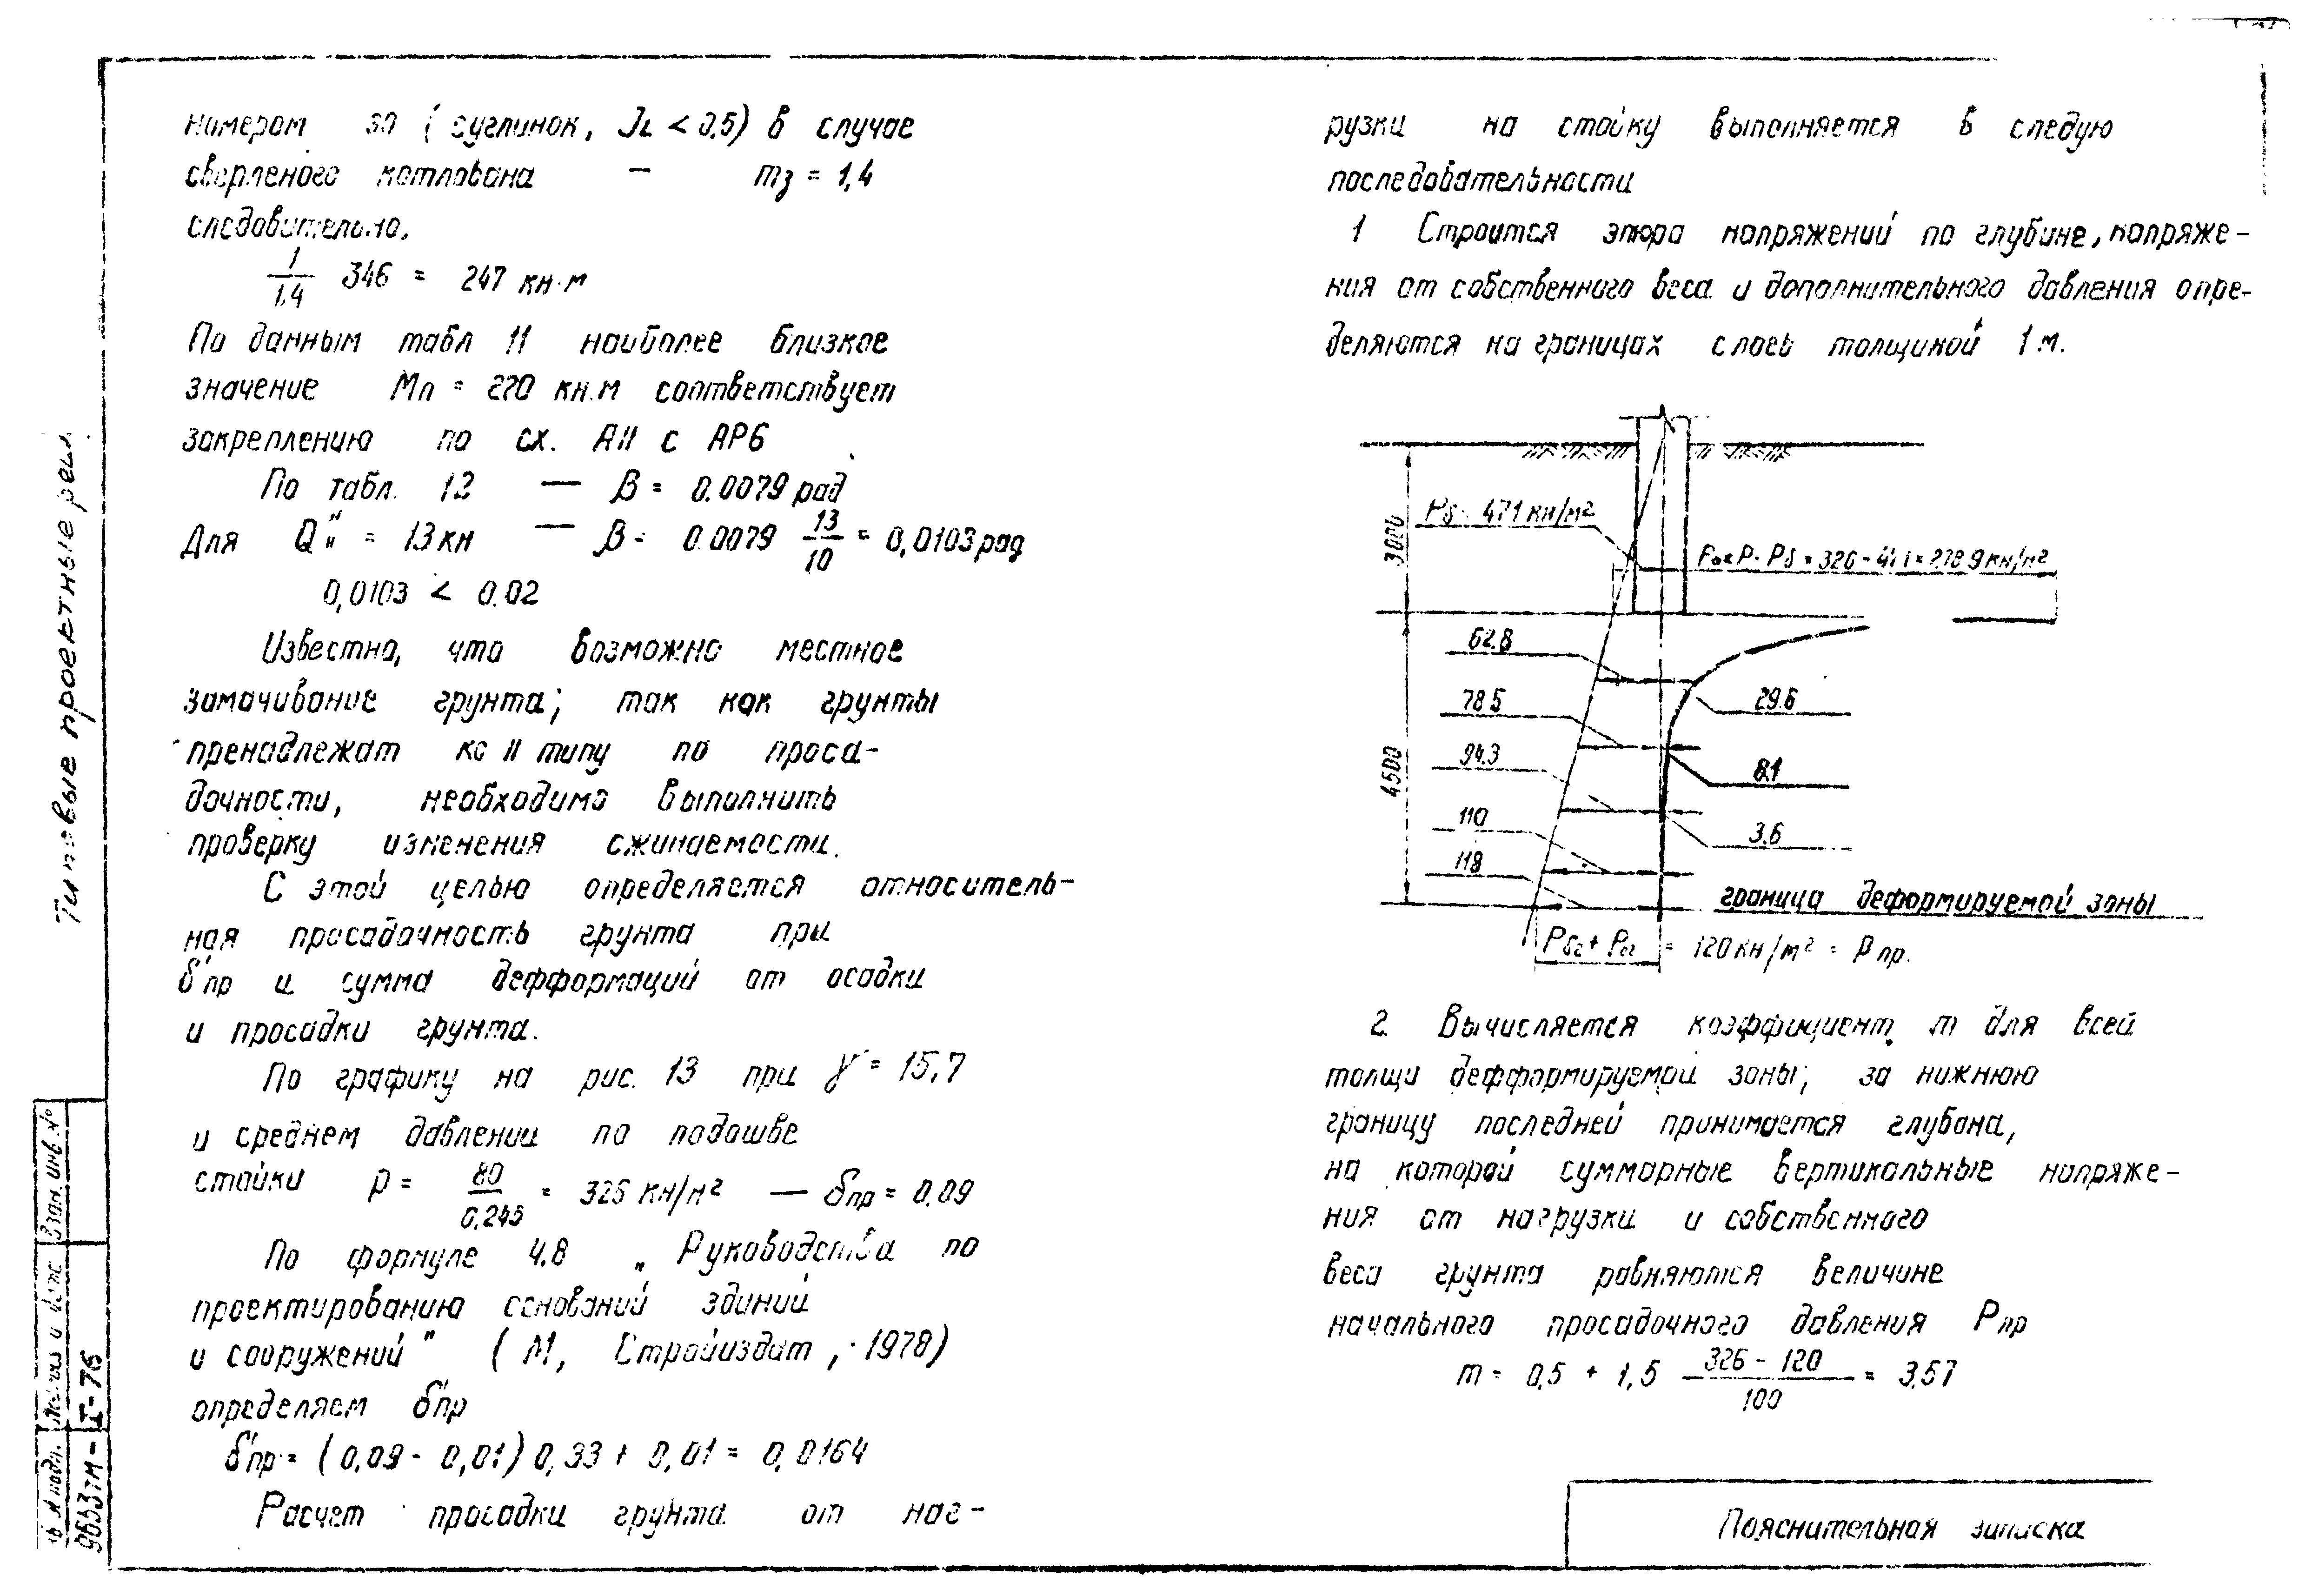 номером 30 ( суглинок, JL < 0,5) в случае
сверленого котлована — m3 = 1,4
следовительно,
1/1.4 346 = 247 кн·м
По данным табл 11 наиболее близкое
значение Мп = 270 кн.м соответствует
закреплению по сх. АII с АР6
По табл. 12 — β = 0.0079 рад
Для Qнн = 13 кн — β = 0.0079 13/10 = 0,0103 рад
0,0103 < 0.02
Известно, что возможно местное
замачивание грунта; так как грунты
пренадлежат ко II типу по проса-
дочности, необходимо выполнить
проверку изменения сжимаемости.
С этой целью определяется относитель-
ная просадочность грунта при
δ'пр и сумма дефформаций от осадки
и просадки грунта.
По графику на рис. 13 при γ = 15,7
и среднем давлении по подошве
стойки р = 80/0,245 = 326 кн/м² — δпр = 0.09
По формуле 4.8 „ Руководства по
проектированию оснований зданий
и сооружений" ( М, Стройиздат , 1978)
определяем δ'пр
δ'пр = ( 0,09 - 0,01 ) 0,33 + 0,01 = 0,0164
Расчет просадки грунта от наг-
рузки на стойку выполняется в следую
последовательности
1 Строится эпюра напряжений по глубине, напряже-
ния от собственного веса и дополнительного давления опре-
деляются на границах слоев толщиной 1 м.
3000
Рб = 471 кн/м²
Р - Рб = 326 - 47.1 = 278.9 кн/м²
62.8
78.5
94.3
110
118
4500
29.6
8.1
3.6
граница деформируемой зоны
Рбг + Рог = 120 кн/м² = Р пр.
2. Вычисляется коэффициент m для всей
толщи дефформируемой зоны; за нижнюю
границу последней принимается глубона,
на которой суммарные вертикальные напряже-
ния от нагрузки и собственного
веса грунта равняются величине
начального просадочного давления Рпр
m = 0,5 + 1,5 326 - 120/100 = 3.57
Пояснительная записка
Типовые проектные реш
Взам. инв. №
9663тм-
I-76